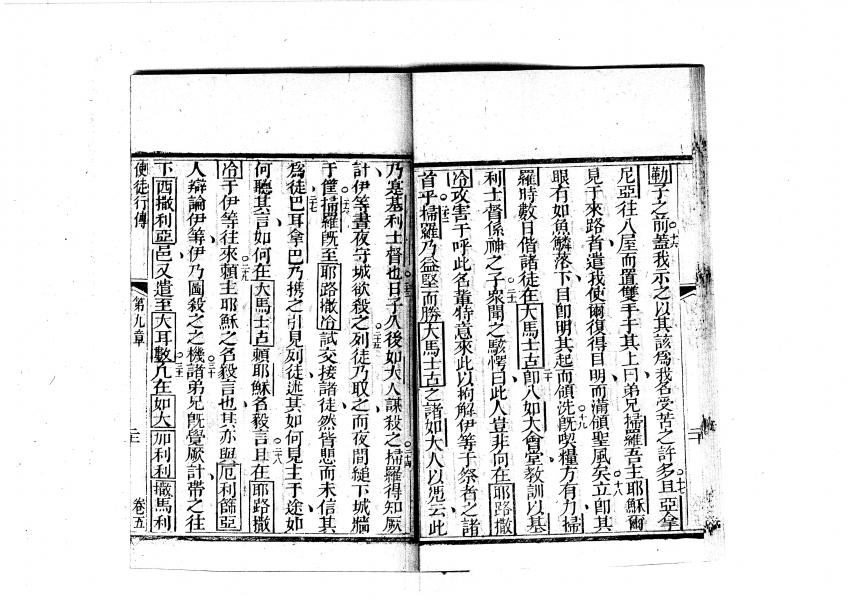 勒子之前蓋我示之以其該為我名受苦之許多且亞拿
尼亞往入屋而置雙手于其上曰弟兄掃羅吾主耶穌爾
見于來路者遣我使爾復得目明而滿領聖風矣立卽其
眼有如魚鱗落下目卽明其起而領洗旣喫糧方有力掃
羅時數日偕諸徒在大馬士古卽入如大會堂教訓以基
利士督係神之子衆聞之駭愕曰此人豈非向在耶路撒
冷攻害于呼此名輩特意來此以拘解伊等于祭者之諸
首乎掃羅乃益堅而勝大馬士古之諸如大人以證云此
乃寔基利士督也日子久後如大人謀殺之掃羅得知厥
計伊等晝夜守城欲殺之列徒乃取之而夜間縋下城牆
于筐掃羅旣至耶路撒冷試交接諸徒然皆悲而未信其
為徒巴耳拿巴乃携之引見列徒述其如何見主于途如
何聽其言如何在大馬士古賴耶穌名毅言且在耶路撒
冷于伊等往來賴主耶穌之名毅言也其亦與厄利篩亞
人辯論伊等伊乃圖殺之之機諸弟兄旣覺厥計帶之往
下西撒利亞邑又遣至大耳數凡在如大加利利撒馬利
使徒行傳
第九章
卷五